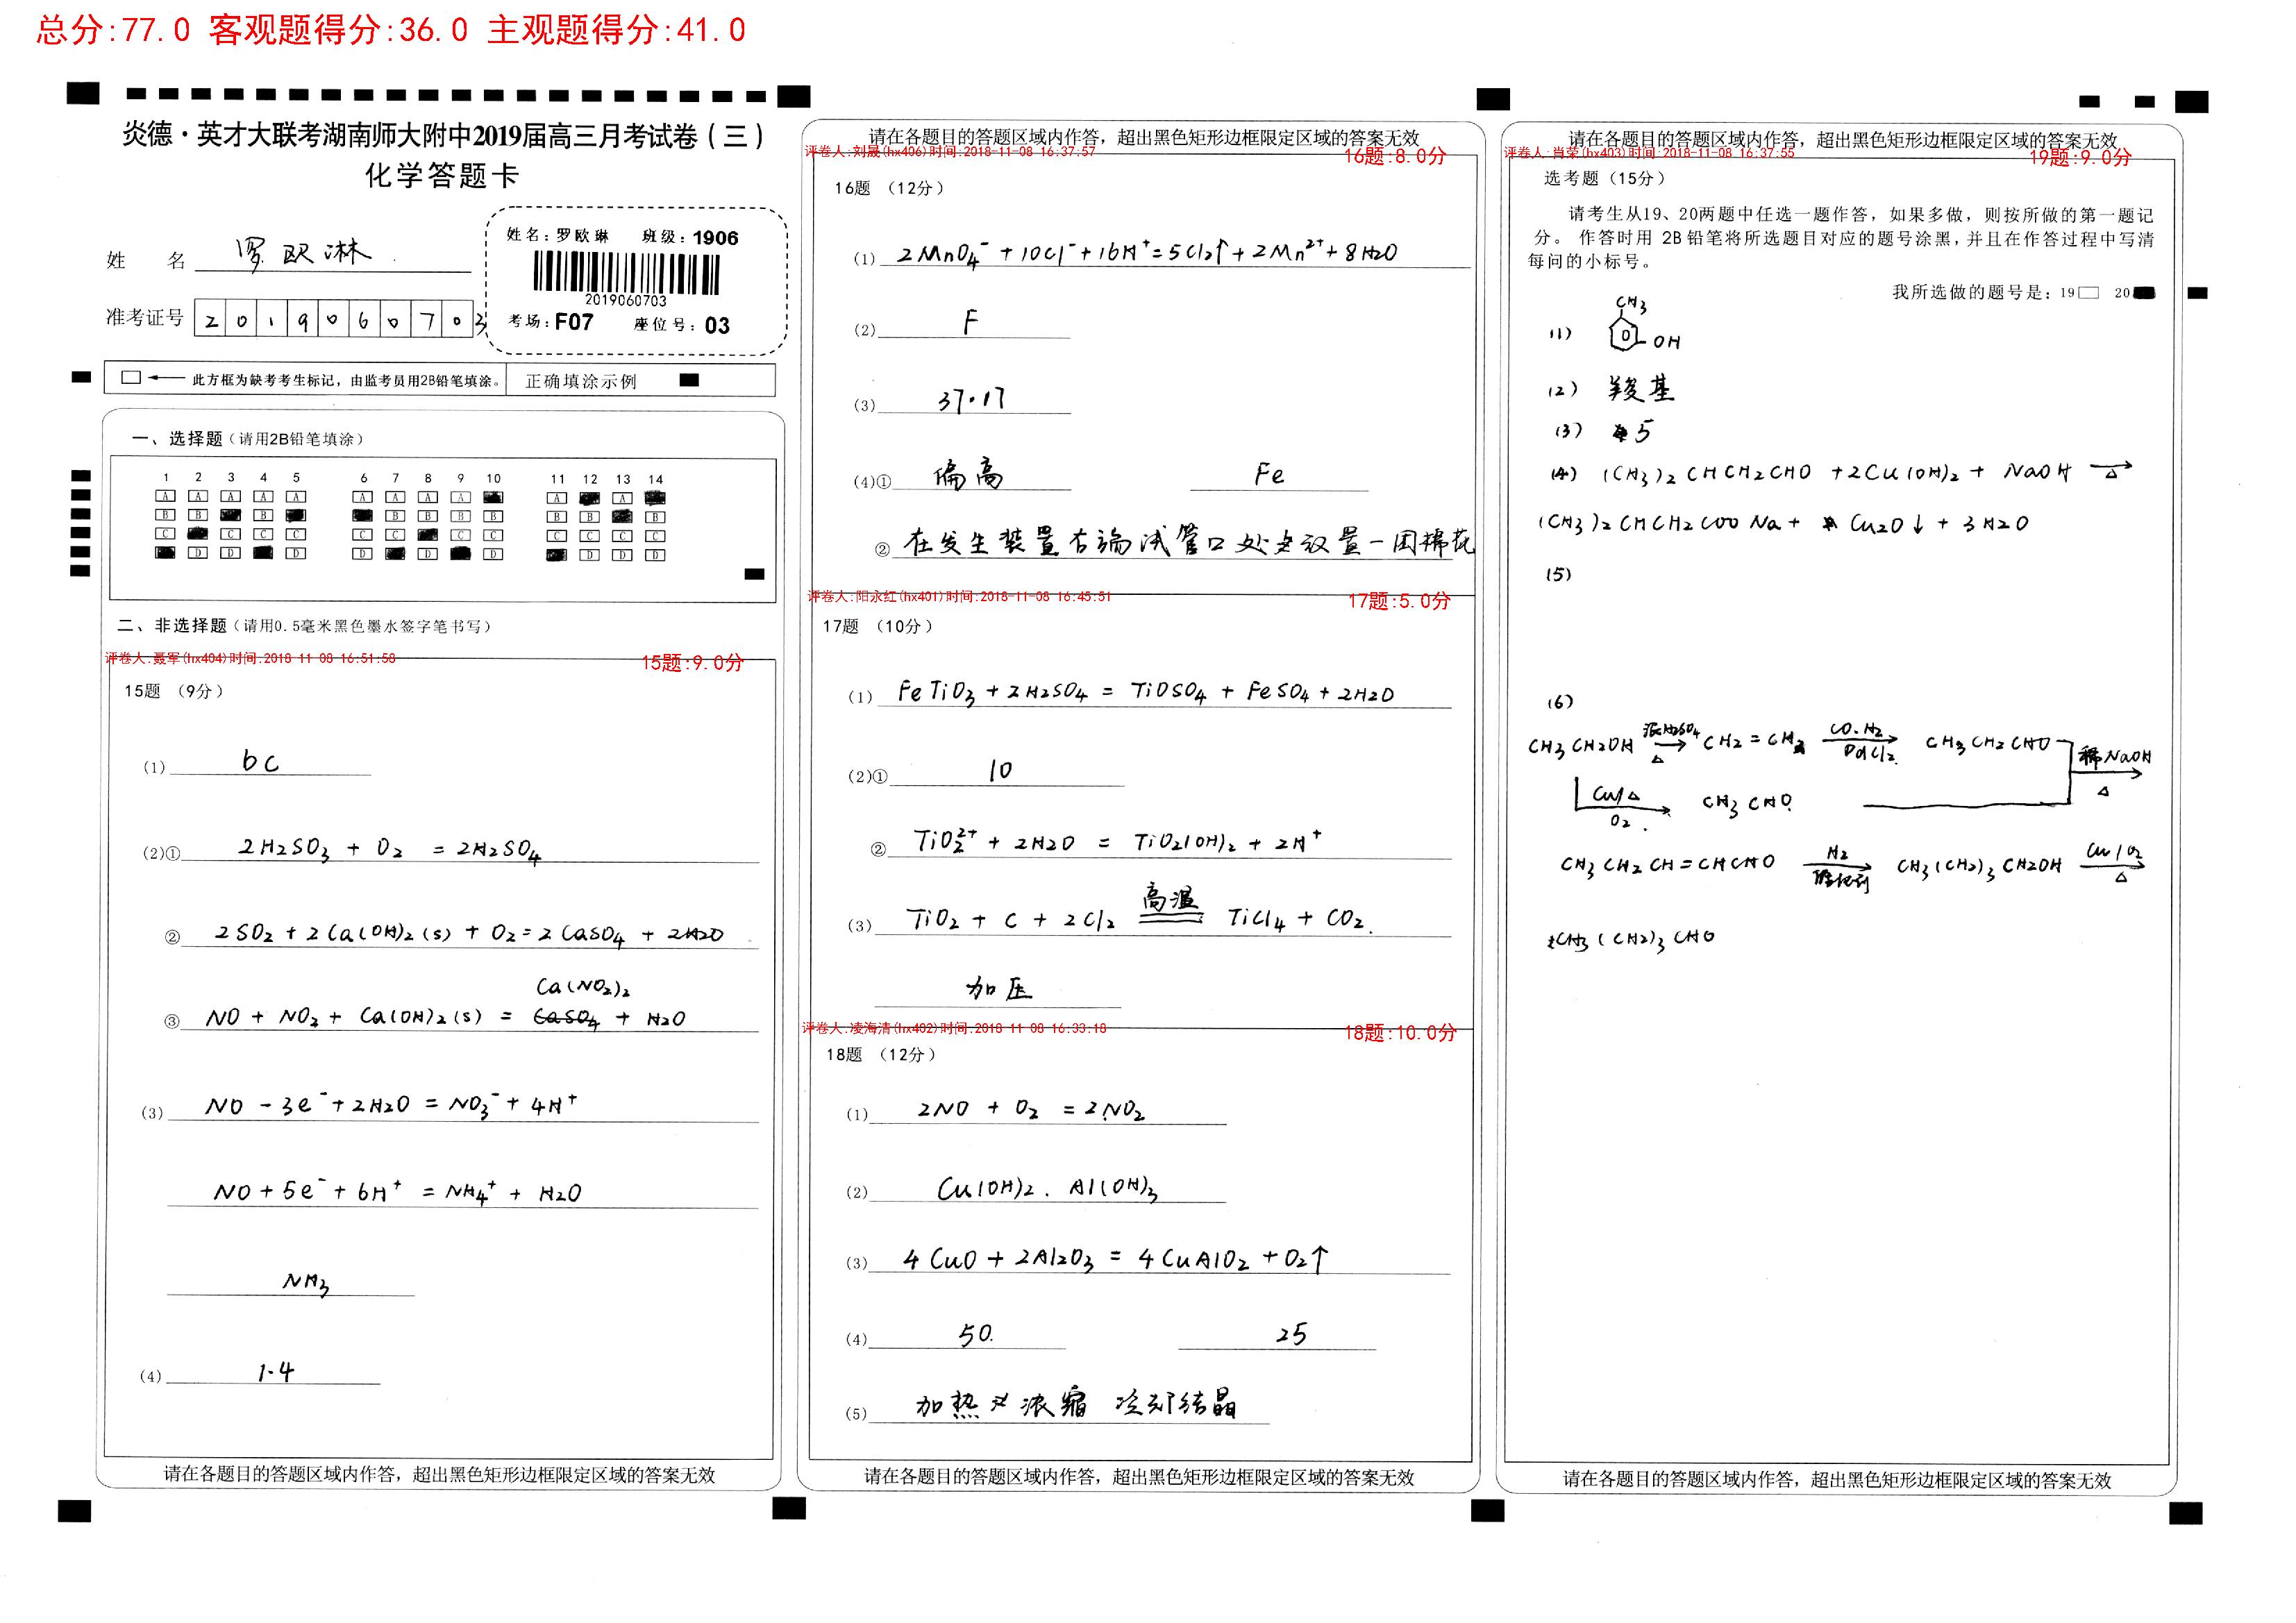 总分:77.0 客观题得分:36.0 主观题得分:41.0
炎德·英才大联考湖南师大附中2019届高三月考试卷（三）
化学答题卡
姓 名 罗欧淋
准考证号 2019060703
姓名：罗欧琳 班级：1906
2019060703
考场：F07 座位号：03
此方框为缺考考生标记，由监考员用2B铅笔填涂。 正确填涂示例
一、选择题（请用2B铅笔填涂）
1 2 3 4 5 6 7 8 9 10 11 12 13 14
二、非选择题（请用0.5毫米黑色墨水签字笔书写）
评卷人:聂军(hx404)时间:2018-11-08 16:51:58 15题:9.0分
15题 （9分）
(1) bc
(2)① 2H₂SO₃ + O₂ = 2H₂SO₄
② 2SO₂ + 2Ca(OH)₂(s) + O₂ = 2CaSO₄ + 2H₂O
Ca(NO₂)₂
③ NO + NO₂ + Ca(OH)₂(s) = CaSO₄ + H₂O
(3) NO - 3e⁻ + 2H₂O = NO₃⁻ + 4H⁺
NO + 5e⁻ + 6H⁺ = NH₄⁺ + H₂O
NH₃
(4) 1.4
请在各题目的答题区域内作答，超出黑色矩形边框限定区域的答案无效
请在各题目的答题区域内作答，超出黑色矩形边框限定区域的答案无效
评卷人:刘晟(hx406)时间:2018-11-08 16:37:57 16题:8.0分
16题 （12分）
(1) 2MnO₄⁻ + 10Cl⁻ + 16H⁺ = 5Cl₂↑ + 2Mn²⁺ + 8H₂O
(2) F
(3) 37.17
(4)① 偏高 Fe
② 在发生装置右端试管口处放置一团棉花
评卷人:阳永红(hx401)时间:2018-11-08 16:45:51 17题:5.0分
17题 （10分）
(1) FeTiO₃ + 2H₂SO₄ = TiOSO₄ + FeSO₄ + 2H₂O
(2)① 10
② TiO₂²⁺ + 2H₂O = TiO₂(OH)₂ + 2H⁺
(3) TiO₂ + C + 2Cl₂ 高温 TiCl₄ + CO₂.
加压
评卷人:凌海清(hx402)时间:2018-11-08 16:33:18 18题:10.0分
18题 （12分）
(1) 2NO + O₂ = 2NO₂
(2) Cu(OH)₂. Al(OH)₃
(3) 4CuO + 2Al₂O₃ = 4CuAlO₂ + O₂↑
(4) 50. 25
(5) 加热 浓缩 冷却结晶
请在各题目的答题区域内作答，超出黑色矩形边框限定区域的答案无效
请在各题目的答题区域内作答，超出黑色矩形边框限定区域的答案无效
评卷人:肖荣(hx403)时间:2018-11-08 16:37:55 19题:9.0分
选考题（15分）
请考生从19、20两题中任选一题作答，如果多做，则按所做的第一题记
分。 作答时用 2B铅笔将所选题目对应的题号涂黑，并且在作答过程中写清
每问的小标号。
我所选做的题号是：19 20
CH₃
(1) OH
(2) 羧基
(3) 5
(4) (CH₃)₂CHCH₂CHO + 2Cu(OH)₂ + NaOH →△
(CH₃)₂CHCH₂COONa + Cu₂O↓ + 3H₂O
(5)
(6)
CH₃CH₂OH 浓H₂SO₄ →△ CH₂=CH₂ CO.H₂ → PdCl₂. CH₃CH₂CHO 稀NaOH → △
Cu/△ → O₂. CH₃CHO
CH₃CH₂CH=CHCHO H₂ → 催化剂 CH₃(CH₂)₃CH₂OH Cu/O₂ → △
CH₃(CH₂)₃CHO
请在各题目的答题区域内作答，超出黑色矩形边框限定区域的答案无效